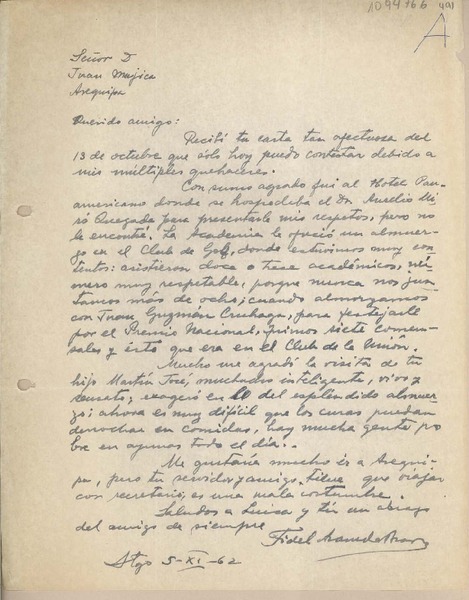 1094766 401
A
Señor D
Juan Mujica
Arequipa
Querido amigo:
Recibí tu carta tan afectuosa del
13 de octubre que sólo hoy puedo contestar debido a
mis múltiples quehaceres.
Con sumo agrado fui al Hotel Pan-
americano donde se hospedaba el Dr. Aurelio Mi
ró Quesada para presentarle mis respetos, pero no
le encontré. La Academia le ofreció un almuer-
zo en el Club de Golf, donde estuvimos muy con
tentos: asistieron doce o trece académicos, nú-
mero muy respetable, porque nunca nos jun
tamos más de ocho; cuando almorzamos
con Juan Guzmán Cruchaga, para festejarle
por el Premio Nacional, fuimos siete comen-
sales y ésto que era en el Club de la Unión.
Mucho me agradó la visita de tu
hijo Martín José, muchacho inteligente, vivo y
sensato; exageró en lo del espléndido almuer
zo; ahora es muy difícil que los curas puedan
derrochar en comidas, hay mucha gente po
bre en ayunas todo el día.
Me gustaría mucho ir a Arequi-
pa, pero tu servidor y amigo tiene que viajar
con secretario, es una mala costumbre.
Saludos a Luisa y tú un abrazo
del amigo de siempre
Fidel Araneda Bravo
Stgo 5-XI-62